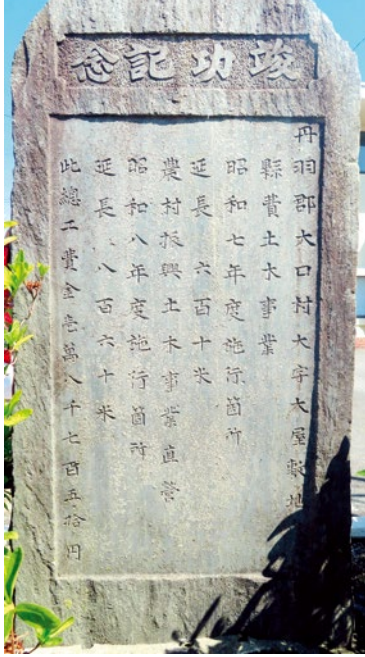 竣功記念
丹羽郡大口村大字大屋敷地
縣費土木事業
昭和七年度施行箇所
延長六百十米
農村振興土木事業直營
昭和八年度施行箇所
延長八百六十米
此總工費金壱萬八千七百五拾円